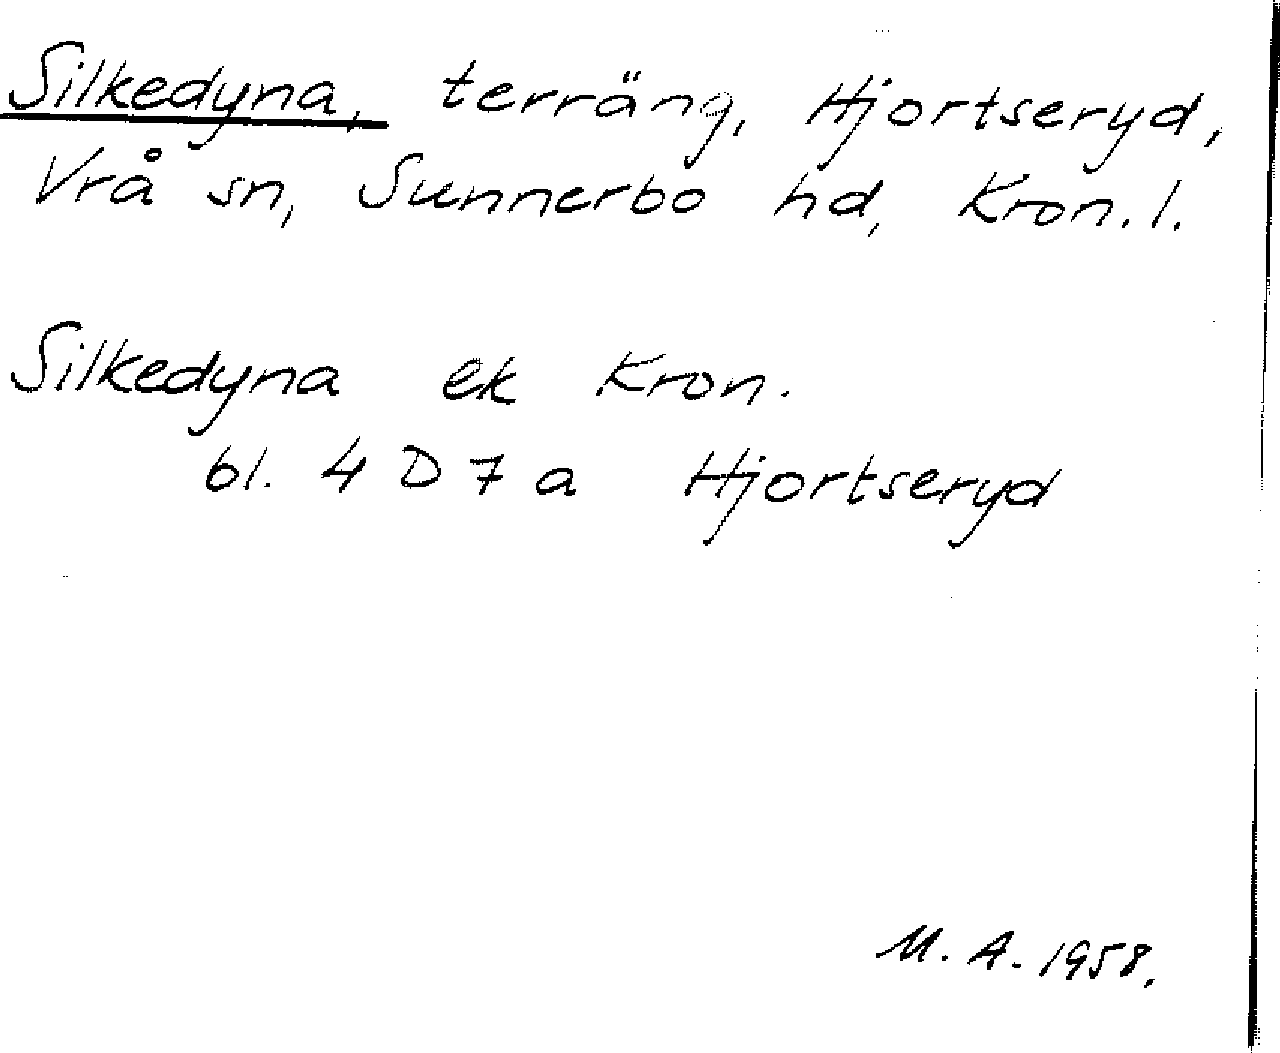 Silkedyna, terräng, Hjortseryd,
Vrå sn, Sunnerbo hd, Kron. l.
Silkedyna ek Kron.
bl. 4 D 7 a Hjortseryd
M. A. 1958.